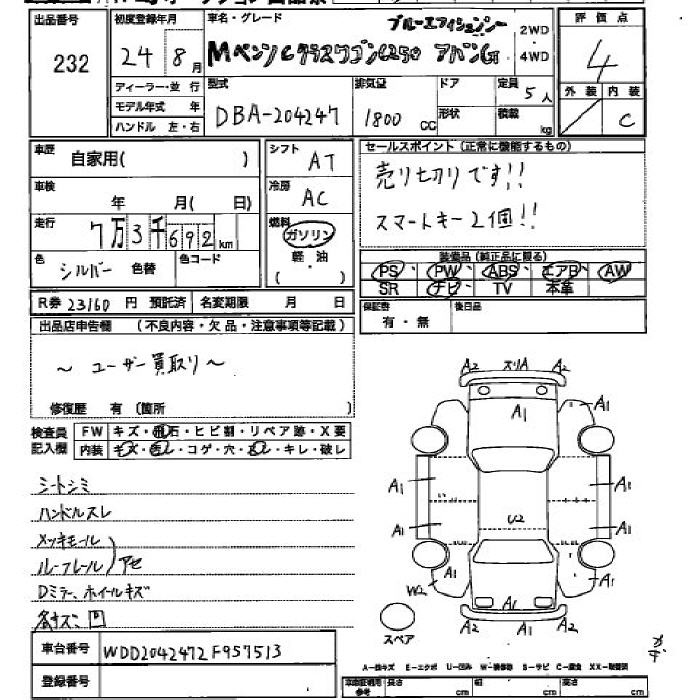 出品番号
232
初度登録年月
24年8月
ディーラー・並 行
モデル年式 年
ハンドル 左・右
車名・グレード
ブルーエフィシェンシー
Mベンツ Cクラスワゴン C250 アバンG
2WD
4WD
型式
DBA-204247
排気量
1800 CC
ドア
形状
定員
5人
積載
kg
評価点
4
外装 内装
C
車歴
自家用( )
車検
年 月( 日)
走行
7万3千692km
色
シルバー 色替
色コード
シフト
AT
冷房
AC
燃料
ガソリン
軽・油
( )
セールスポイント(正常に機能するもの)
売り切りです!!
スマートキー2個!!
装備品(純正品に限る)
PS PW ABS エアB AW
SR ナビ TV 本革
保証書
有・無
後日品
R券 23160 円 預託済 名変期限 月 日
出品店申告欄 (不良内容・欠品・注意事項等記載)
~ユーザー買取り~
修復歴 有 (箇所 )
検査員
記入欄
FW キズ・飛石・ヒビ割・リペア跡・X要
内装 キズ・汚レ・コゲ・穴・スレ・キレ・破レ
シートシミ
ハンドルスレ
メッキモール
ルーフレール アセ
Dミラー、ホイールキズ
車台番号 WDD2042472F957513
登録番号
A2 スリA A2
A1 A1 A1
A1 A1
A1 U2 A1
W2 A1 A1 A1
A2 A1 A2
スペア
A-線キズ E-エクボ U-凹み W-補修跡 S-サビ C-腐食 XX-取替済
長さ cm 幅 cm 高さ cm